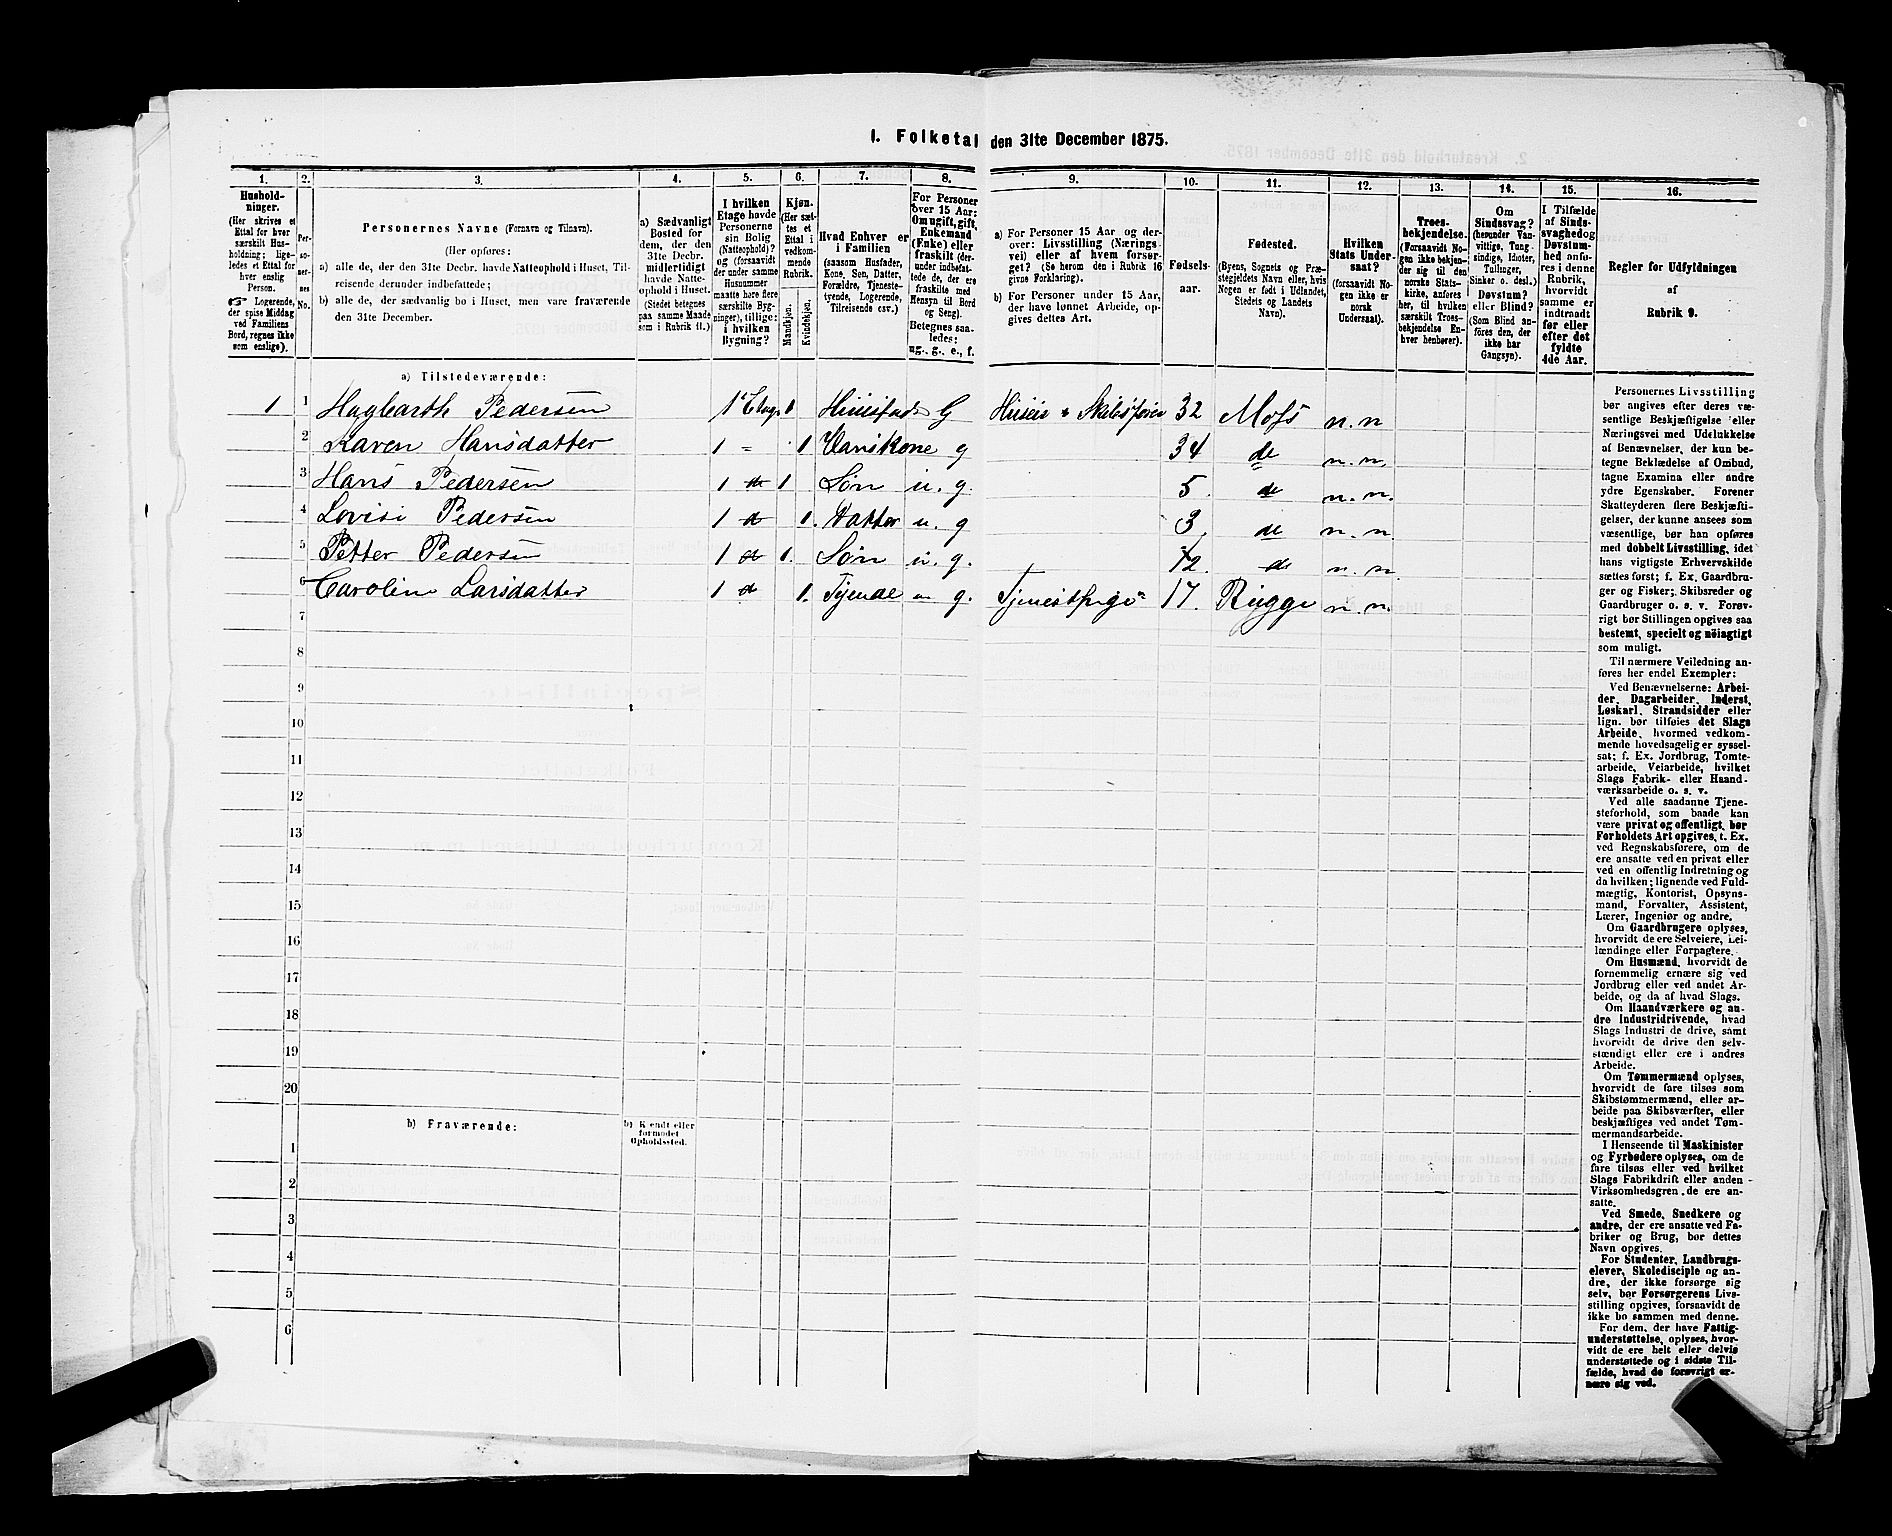 1. Folketal den 31te December 1875.
1. 2. 3. 4. 5. 6. 7. 8. 9. 10. 11. 12. 13. 14. 15. 16.
Hushold-
ninger.
(Her skrives et
Ettal for hver
særskilt Hus-
holdning; lige-
ledes et Ettal for
hver enslig
Person.
☞ Logerende,
der spise Middag
ved Familiens
Bord, regnes ikke
som enslige).
Per-
so-
ner-
nes
No.
Personernes Navne (Fornavn og Tilnavn).
(Her opføres:
a) alle de, der den 31te Decbr. havde Natteophold i Huset, Til-
reisende derunder indbefattede;
b) alle de, der sædvanlig bo i Huset, men vare fraværende
den 31te December.
a) Sædvanligt
Bosted for
dem, der den
31te Decbr.
midlertidigt
havde Natte-
ophold i Huset.
(Stedet betegnes
paa samme Maade
som i Rubrik 11.)
I hvilken
Etage havde
Personerne
sin Bolig
(Natteophold)?
og (forsaavidt
der under samme
Husnummer
maatte høre flere
særskilte Byg-
ninger), tillige: i
hvilken
Bygning?
Kjøn.
(Her sæt-
tes et
Ettal i
vedkom-
mende
Rubrik.
Mandkjøn.
Kvindekjøn.
Hvad Enhver er
i Familien
(saasom Husfader,
Kone, Søn, Datter,
Forældre, Tjeneste-
tyende, Logerende,
Tilreisende osv.)
For Personer
over 15 Aar:
Om ugift, gift,
Enkemand
(Enke) eller
fraskilt (der-
under indbefat-
tede de, der ere
fraskilte med
Hensyn til Bord
og Seng).
Betegnes saa-
ledes:
ug., g., e., f.
a) For Personer 15 Aar og der-
over: Livsstilling (Nærings-
vei) eller af hvem forsør-
get? (Se herom den i Rubrik 16
givne Forklaring).
b) For Personer under 15 Aar,
der have lønnet Arbeide, op-
gives dettes Art.
Fødsels-
aar.
Fødested.
(Byens, Sognets og Præ-
stegjeldets Navn eller, hvis
Nogen er født i Udlandet,
Stedets og Landets
Navn).
Hvilken
Stats Under-
saat?
(forsaavidt No-
gen ikke er
norsk
Undersaat).
Troes-
bekjendelse.
(Forsaavidt No-
gen ikke bekjen-
der sig til den
norske Stats-
kirke, anføres
her, til hvilken
særskilt Troes-
bekjendelse En-
hver henhører).
Om
Sindssvag?
(herunder Van-
vittige, Tung-
sindige, Idioter,
Tullinger,
Sinker o. desl.)
Døvstum?
eller Blind?
(Som Blind an-
føres den, der
ikke har
Gangsyn).
I Tilfælde
af Sinds-
svaghed og
Døvstum-
hed anfø-
res i denne
Rubrik,
hvorvidt
samme er
indtraadt
før eller
efter det
fyldte
4de Aar.
Regler for Udfyldningen
af
Rubrik 9.
a) Tilstedeværende:
1 1 Hagbarth Pedersen 1' Etage 1 Huusfader G Huseier & Skibsfører 32 Moss n.n
2 Karen Hansdatter 1 = 1 Hanskone g 34 de n.n.
3 Hans Pedersen 1 d 1 Søn u. g. 5. de n.n.
4 Lovise Pedersen 1 d 1. Datter u. g 3. de n.n.
5 Petter Pedersen 1 d 1. Søn u. g. 72. de n.n.
6 Caroline Larsdatter 1 d 1. Tyende g. Tjenestpige 17. Rygge n.n.
7
8
9
10
11
12
13
14
15
16
17
18
19
20
b) Fraværende:
b) Kjendt eller
formodet
Opholdssted.
1
2
3
4
5
6
Personernes Livsstilling
bør angives efter deres væ-
sentlige Beskjæftigelse eller
Næringsvei med Udelukkelse
af Benævnelser, der kun be-
tegne Beklædelse af Ombud,
tagne Examina eller andre
ydre Egenskaber. Forener
Skatteyderen flere Beskjæfti-
gelser, der kunne ansees som
væsentlige, bør han opføres
med dobbelt Livsstilling, idet
hans vigtigste Erhvervskilde
sættes først; f. Ex. Gaardbru-
ger og Fisker; Skibsreder og
Gaardbruger o. s. v. Forøv-
rigt bør Stillingen opgives saa
bestemt, specielt og nøiagtigt
som muligt.
Til nærmere Veiledning an-
føres her endel Exempler:
Ved Benævnelserne: Arbei-
der, Dagarbeider, Inderst,
Løskarl, Strandsidder eller
lign. bør tilføies det Slags
Arbeide, hvormed vedkom-
mende hovedsagelig er syssel-
sat; f. Ex. Jordbrug, Tomte-
arbeide, Veiarbeide, hvilket
Slags Fabrik- eller Haand-
værksarbeide o. s. v.
Ved alle saadanne Tjene-
steforhold, som baade kan
være privat og offentligt, bør
Forholdets Art opgives, t. Ex.
ved Regnskabsførere, om de
ere ansatte ved en privat eller
ved en offentlig Indretning og
da hvilken; lignende ved Fuld-
mægtig, Kontorist, Opsyns-
mand, Forvalter, Assistent,
Lærer, Ingeniør og andre.
Om Gaardbrugere oplyses,
hvorvidt de ere Selveiere, Lei-
lændinge eller Forpagtere.
Om Husmænd, hvorvidt de
fornemmelig ernære sig ved
Jordbrug eller ved andet Ar-
beide, og da af hvad Slags.
Om Haandværkere og an-
dre Industridrivende, hvad
Slags Industri de drive, samt
hvorvidt de drive den selv-
stændigt eller ere i andres
Arbeide.
Om Tømmermænd oplyses,
hvorvidt de fare tilsøs som
Skibstømmermænd, eller ar-
beide paa Skibsværfter, eller
beskjæftiges ved andet Tøm-
mermandsarbeide.
I Henseende til Maskinister
og Fyrbødere oplyses, om de
fare tilsøs eller ved hvilket
Slags Fabrikdrift eller anden
Virksomhedsgren de ere an-
satte.
Ved Smede, Snedkere og
andre, der ere ansatte ved Fa-
briker og Brug, bør dettes
Navn opgives.
For Studenter, Landbrugs-
elever, Skoledisciple og an-
dre, der ikke forsørge sig
selv, bør Forsørgerens Livs-
stilling opgives, forsaavidt de
ikke bo sammen med denne.
For dem, der have Fattig-
understøttelse, oplyses, hvor-
vidt de ere helt eller delvis
understøttede og i sidste Til-
fælde, hvad de forøvrigt er-
nære sig ved.